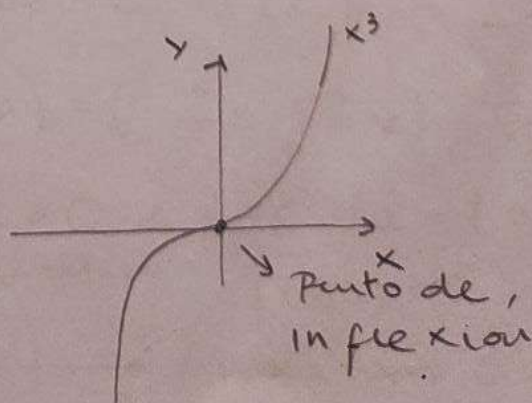 y
x³
x
Punto de,
inflexion